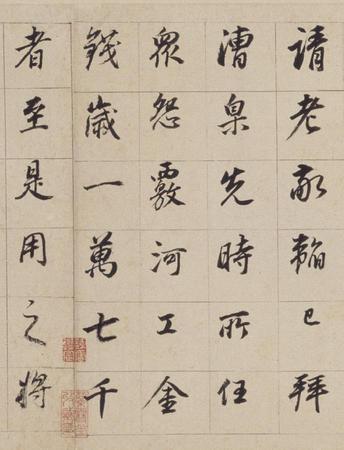 請老韜已拜
漕臬先時所任
眾怨覈河工金
錢歲一萬七千
者至是用之將